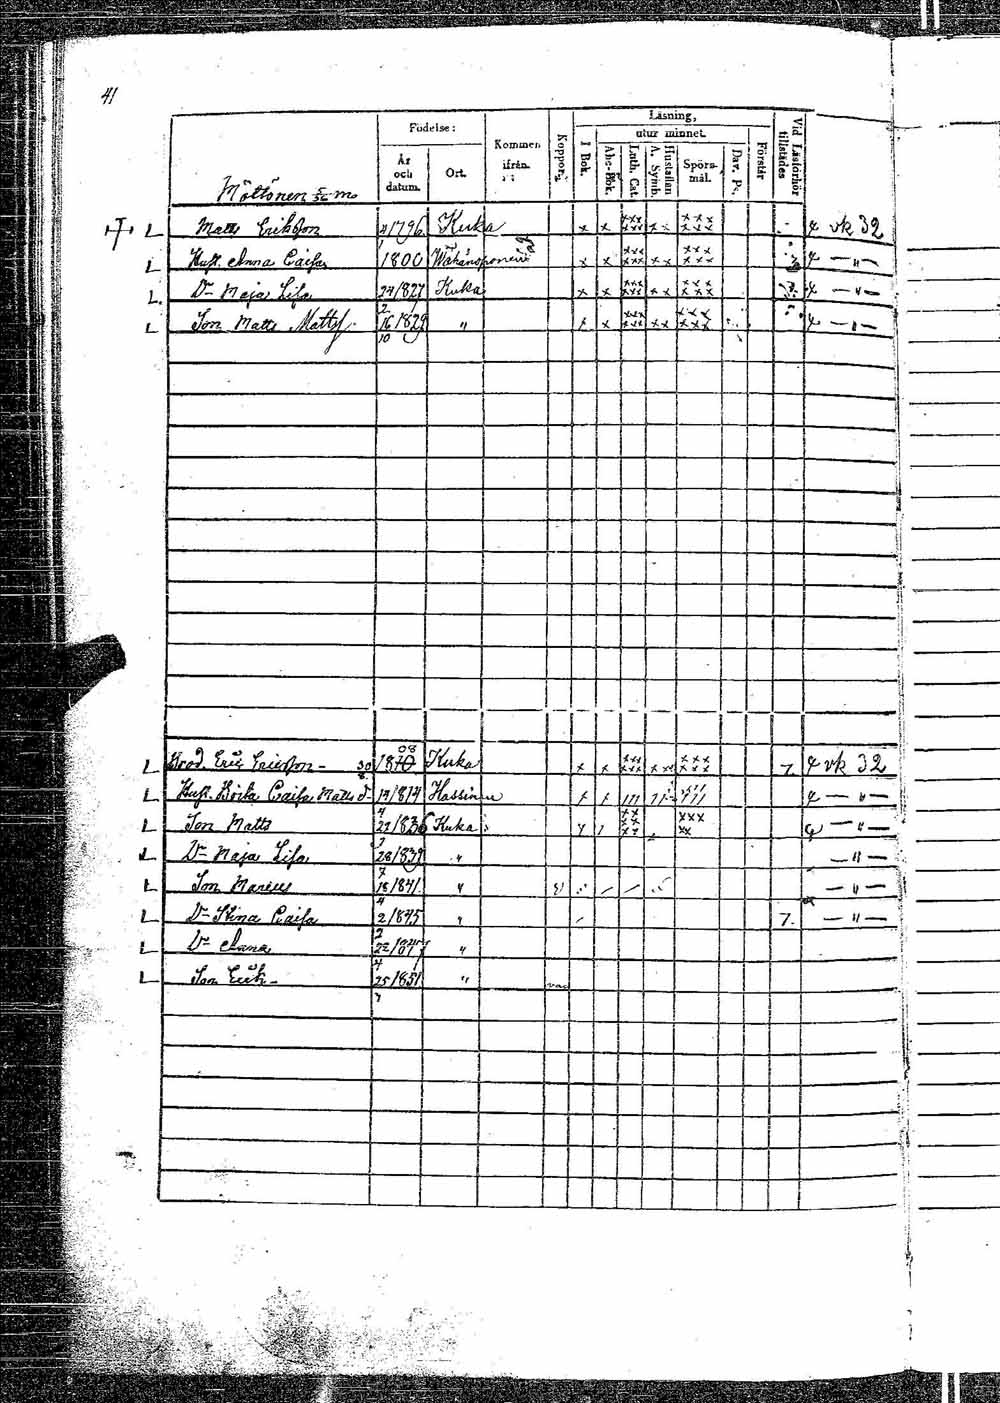 41
Läsning,
Födelse:
utur minnet.
Kommen ifrån.
Koppor.
I Bok.
Abc-Bok.
Luth. Cat.
A. Symb.
Hustaflan
Spörsmål.
Dav. Ps.
Förstår
Vid Läsförhör tillstädes
År och datum.
Ort.
Möttönen
Matts Ericsson 1796 Kuka x x xxx xxx x xxx xxx 4 vk 32
Hust. Anna Caisa 1800 x x xxx xxx x x xxx xxx 4 — " —
Dr Maja Lisa 24/2 1827 Kuka x x xxx xxx x x xxx xxx 4 — " —
Son Matts Mattss. 16/10 1829 " x x xxx xxx x x xxx xxx 4 — " —
Brod. Eric Ericsson 30/8 1808 Kuka x x xxx xxx x x xxx xxx 7. 4 vk 32
Hust. Brita Caisa Matts d. 19/4 1814 Hassinen 4 — " —
Son Matts 22/3 1836 Kuka xx xx xx xxx xx 4 — " —
Dr Maja Lisa 28/7 1839 " — " —
Son Marcus 18/4 1841 " — " —
Dr Stina Caisa 2/2 1845 " 7. — " —
Dr Anna 22/4 "
Son Erik 25/7 1851 " vac